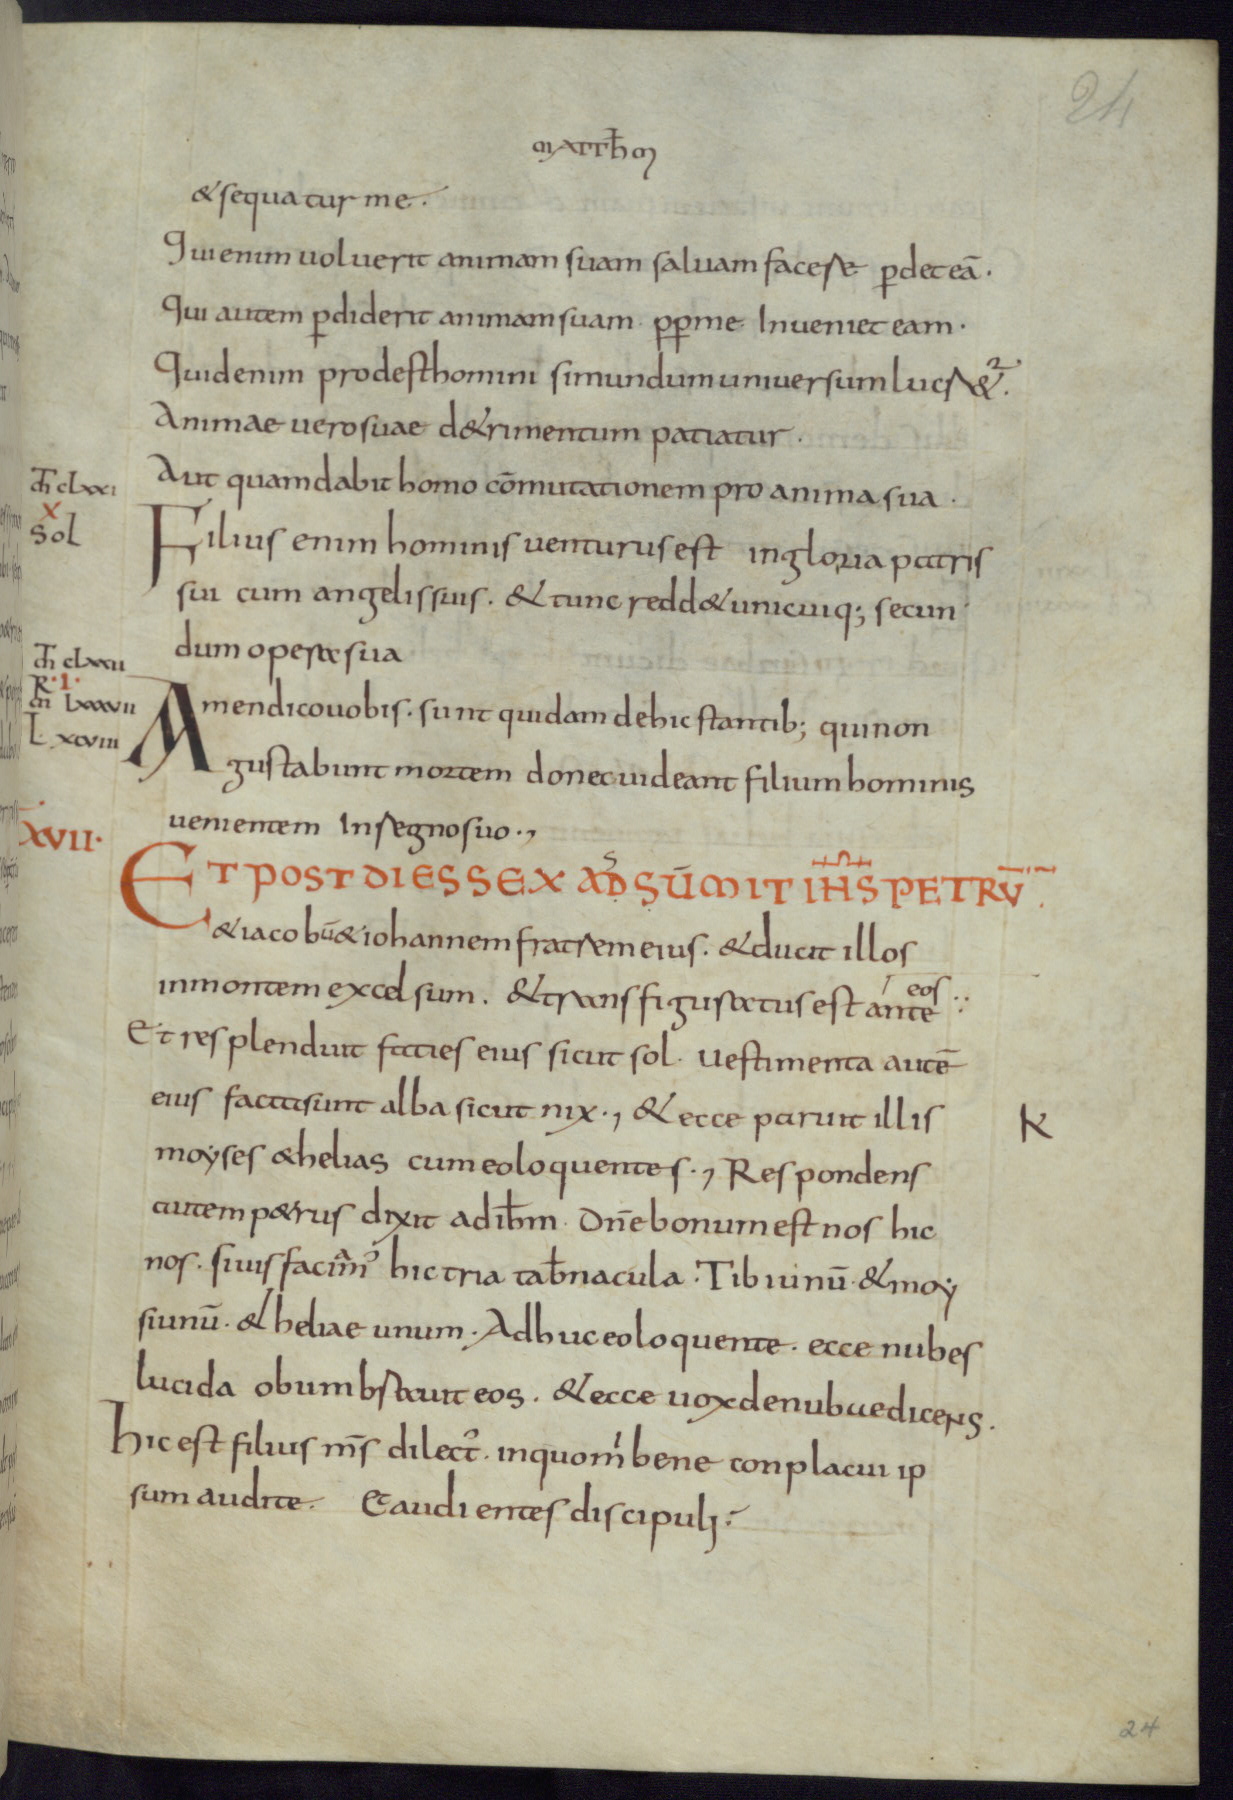 24
MATTHM
& sequatur me.
Qui enim voluerit animam suam salvam facere p̱det eā.
Qui autem p̱diderit animam suam pp̱ me Inveniet eam.
Quid enim prodest homini si mundum universum lucr&².
Animae vero suae d&rimentum patiatur.
Aut quam dabit homo cōmutationem pro anima sua.
m̄ clxxi
X
Sol
Filius enim hominis venturus est in gloria patris
sui cum angelis suis. & tunc redd& unicuiq; secun
dum opera sua
m̄ clxxii
R·I·
m̄ lxxxvii
L xcviii
Amen dico vobis. sunt quidam de hic stantib; qui non
gustabunt mortem donec videant filium hominis
venientem In regno suo.,
XVII·
ET POST DIES SEX ADSŪMIT IH̄S PETRŪ.
& iacobū & iohannem fratrem eius. & ducit illos
in montem excelsum. & transfiguratus est ante eos
Et resplenduit facies eius sicut sol. vestimenta autē
eius facta sunt alba sicut nix., & ecce paruit illis
K
moyses & helias cum eo loquentes., Respondens
autem p&rus dixit ad ih̄m. Dn̄e bonum est nos hic
nos. si vis facim̄' hic tria tab̄nacula. Tibi unū. & moy
si unū. & heliae unum. Adhuc eo loquente. ecce nubes
lucida obumbravit eos. & ecce vox de nubue dicens.
Hic est filius m̄s dilect'. in quo m' bene conplacui ip
sum audite. Et audientes discipuli
24